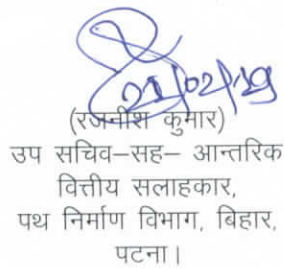 21/02/19
(रजनीश कुमार)
उप सचिव–सह– आन्तरिक
वित्तीय सलाहकार,
पथ निर्माण विभाग, बिहार,
पटना।